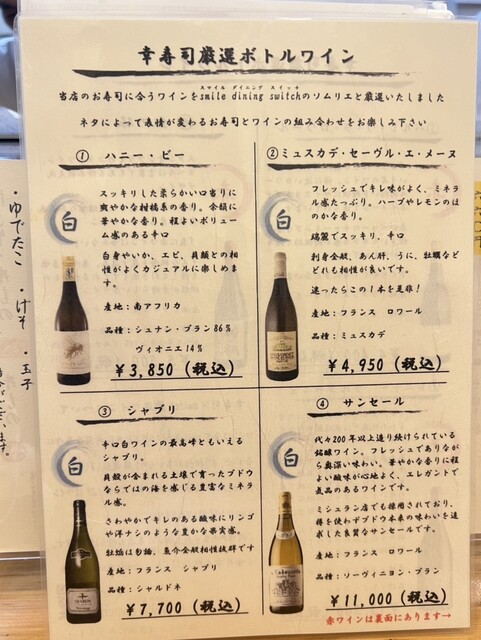 幸寿司厳選ボトルワイン
スマイル ダイニング スイッチ
当店のお寿司に合うワインをsmile dining switchのソムリエと厳選いたしました
ネタによって表情が変わるお寿司とワインの組み合わせをお楽しみ下さい
① ハニー・ビー
白
スッキリした柔らかい口当りに
爽やかな柑橘系の香り。余韻に
華やかな香り。程よいボリュー
ム感のある辛口
白身やいか、エビ、貝類との相
性がよくカジュアルに楽しめま
す。
産地：南アフリカ
品種：シュナン・ブラン86%
ヴィオニエ14%
¥3,850（税込）
②ミュスカデ・セーヴル・エ・メーヌ
白
フレッシュでキレ味がよく、ミネラ
ル感たっぷり。ハーブやレモンのほ
のかな香り。
端麗でスッキリ、辛口
刺身全般、あん肝、うに、牡蠣など
どれも相性が良いです。
迷ったらこの1本を是非！
産地：フランス ロワール
品種：ミュスカデ
¥4,950（税込）
③ シャブリ
白
辛口白ワインの最高峰ともいえる
シャブリ。
貝殻が含まれる土壌で育ったブドウ
ならではの海を感じる豊富なミネラ
ル感。
さわやかでキレのある酸味にリンゴ
や洋ナシのような豊かな果実感。
牡蠣は勿論、魚介全般相性抜群です
産地：フランス シャブリ
品種：シャルドネ
¥7,700（税込）
④ サンセール
白
代々200年以上造り続けられている
銘醸ワイン。フレッシュでありなが
ら奥深い味わい。華やかな香りに程
よい酸味が心地よく、エレガントで
気品のあるワインです。
ミシュラン店でも採用されており、
得を使わずブドウ本来の味わいを追
求した良質なサンセールです。
産地：フランス ロワール
品種：ソーヴィニヨン・ブラン
¥11,000（税込）
赤ワインは裏面にあります→
・ゆでたこ ・げそ ・玉子